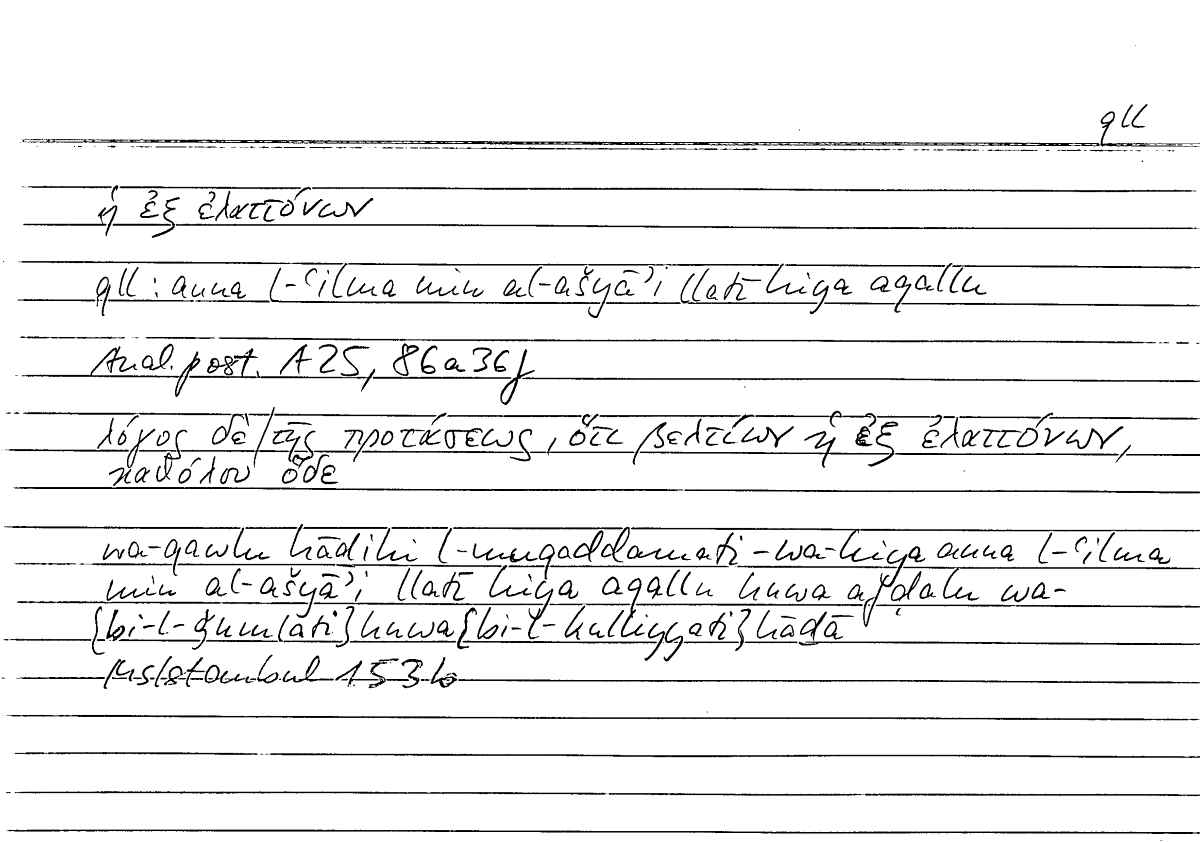 qll
ἡ ἐξ ἐλαττόνων
qll: anna l-ʿilma min al-ašyāʾi llatī hiya aqallu
Anal. post. A 25, 86a36f
λόγος δὲ/τῆς προτάσεως, ὅτι βελτίων ἡ ἐξ ἐλαττόνων,
καθόλου ὅδε
wa-qawlu hāḏihi l-muqaddamati -wa-hiya anna l-ʿilma
min al-ašyāʾi llatī hiya aqallu huwa afḍalu wa-
{bi-l-ǧumlati} huwa {bi-l-kulliyyati} hāḏā
Ms Istanbul 153b